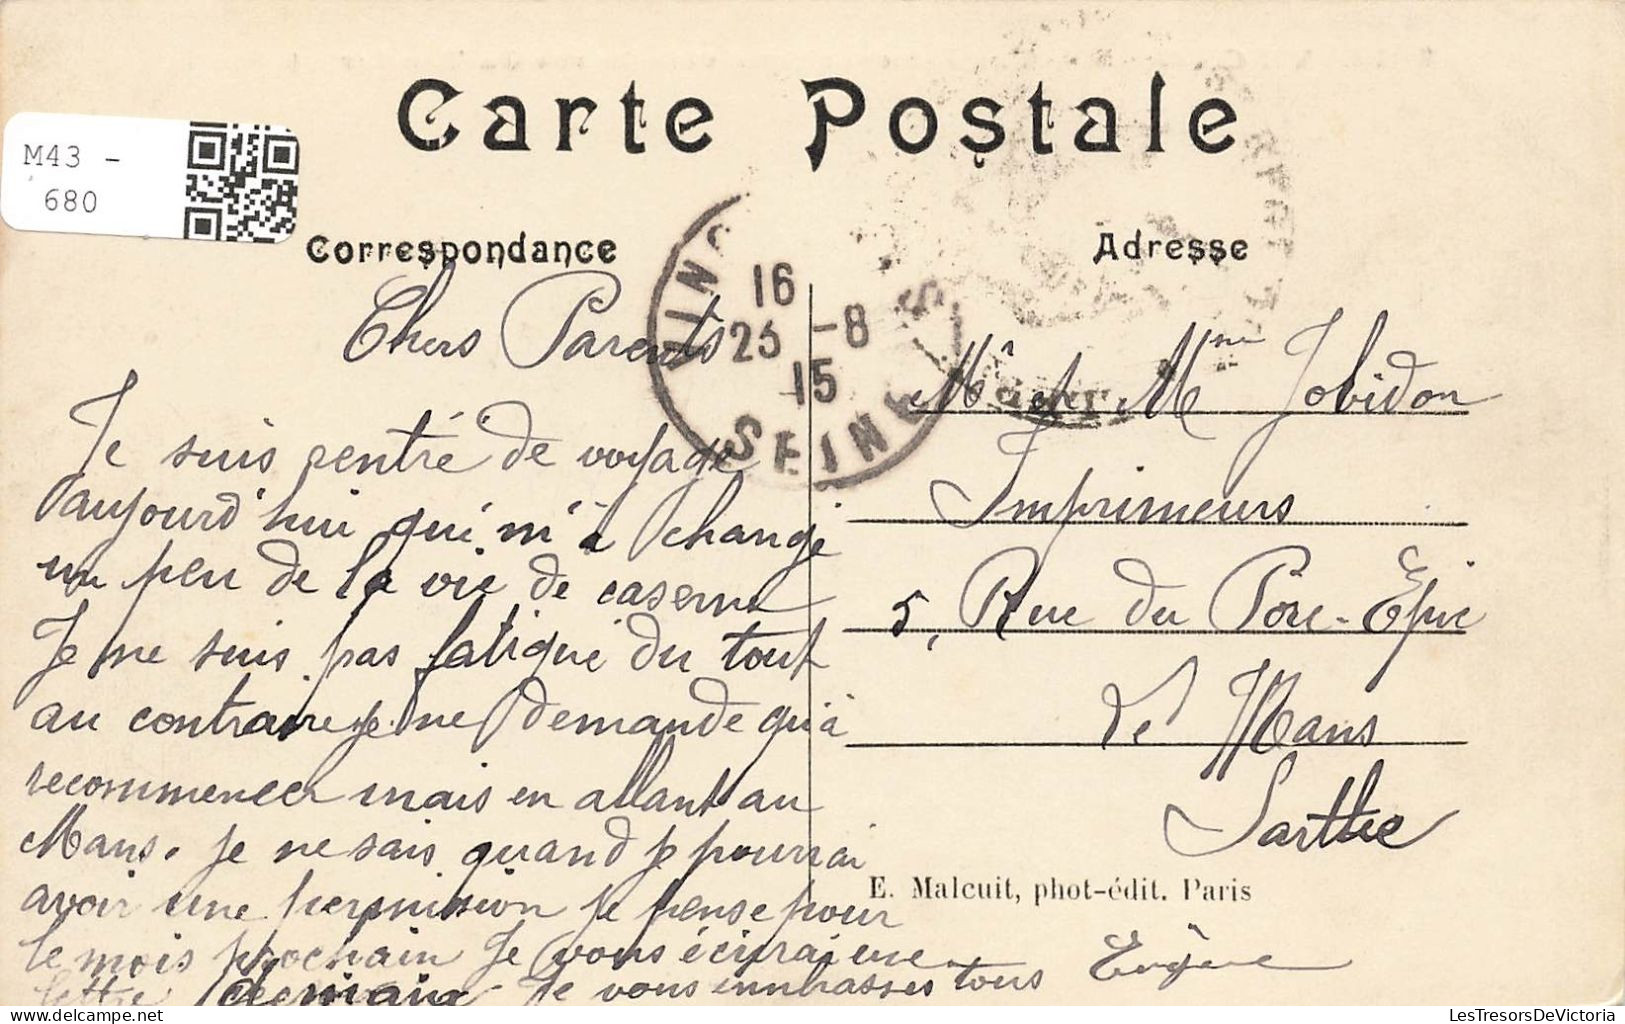 Carte Postale
M43 -
680
Correspondance
Adresse
16
25 -8
15
SEINE
Chers Parents
Je suis rentré de voyage
aujourd'hui qui m'à changé
un peu de la vie de caserne
Je ne suis pas fatigué du tout
au contraire je ne demande qu'à
recommencer mais en allant au
Mans. je ne sais quand je pourrai
avoir une permission je pense pour
le mois prochain Je vous écrirai une
lettre demain Je vous embrasses tous Eugène
Mr et Mme Jobidon
Imprimeurs
5, Rue du Porc-Epic
Le Mans
Sarthe
E. Malcuit, phot-édit. Paris
LesTresorsDeVictoria